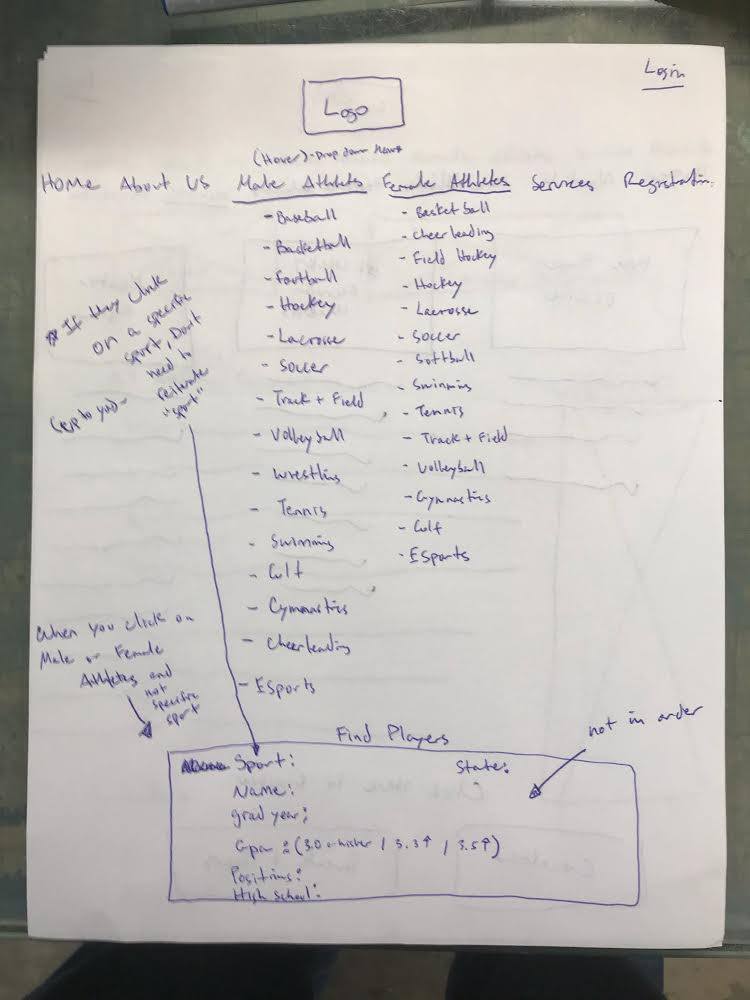 Login
Logo
(Hover)-Drop down Menu
Home About Us Male Athletes Female Athletes Services Registration
- Baseball
- Basketball
- football
- Hockey
- Lacrosse
- Soccer
- Track + Field
- Volleyball
- Wrestling
- Tennis
- Swimming
- Golf
- Gymnastics
- Cheerleading
- ESports
- Basketball
- cheerleading
- Field Hockey
- Hockey
- Lacrosse
- Soccer
- Softball
- Swimming
- Tennis
- Track + Field
- Volleyball
- Gymnastics
- Golf
- ESports
* If they click
on a specific
sport, Don't
need to
reiterate
"sport"
(up to you)-
When you click on
Male or Female
Athletes and
not
specific
sport
Find Players
not in order
Sport: State:
Name:
grad year:
Gpa: (3.0 or higher / 3.3↑ / 3.5↑)
Positions:
High school: